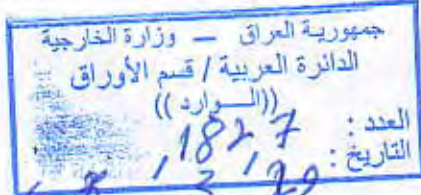 جمهورية العراق — وزارة الخارجية
الدائرة العربية / قسم الأوراق
((الـــوارد))
العدد : 1827
التاريخ :